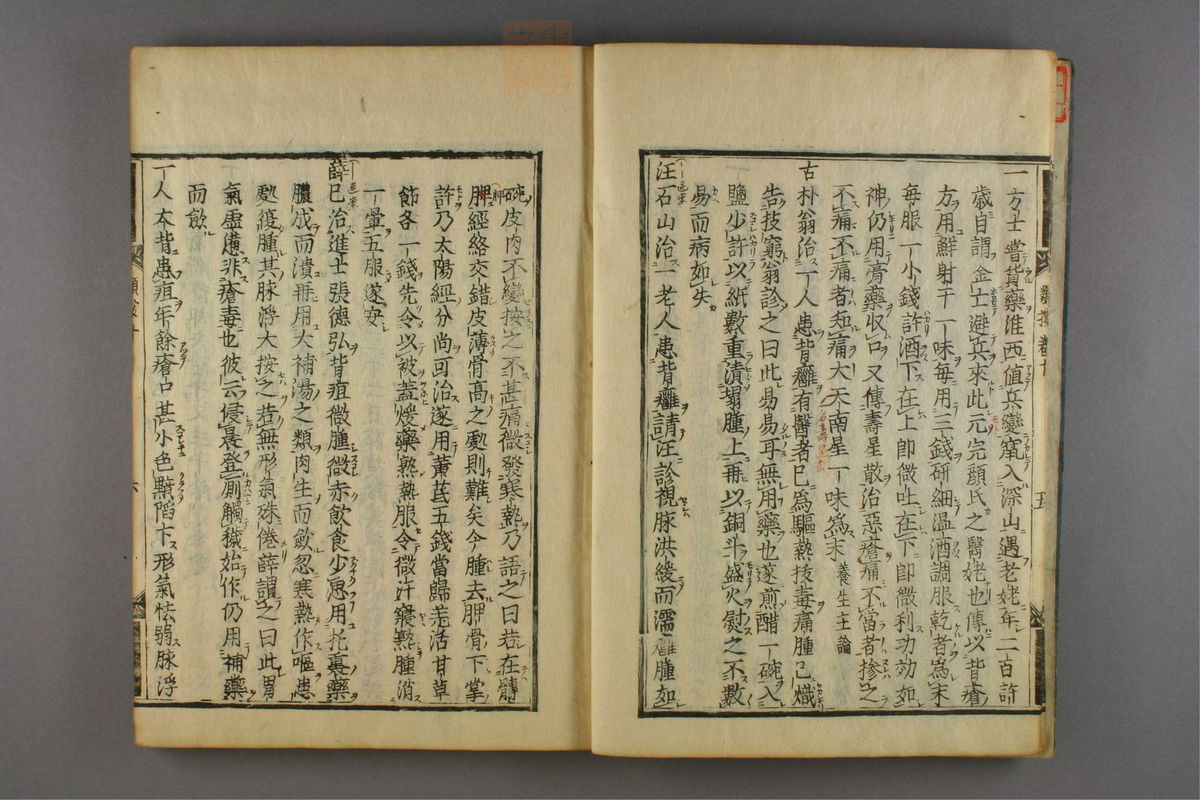 一方士嘗貨藥淮西値兵變竄入深山遇老姥年二百許
歲自謂金士避兵來此元完顔氏之醫姥也傳以背瘡
方用鮮射干一味每用三錢研細溫酒調服乾者爲末
每服一小錢許酒下在上即微吐在下即微利功効如
神仍用膏藥收口又傳壽星散治惡瘡痛不當者摻之
不痛不痛者知痛大天南星一味爲末 養生主論
古朴翁治一人患背癰有醫者已爲驅熱拔毒痛腫已熾
告技窮翁診之曰此易易耳無用藥也遂煎醋一碗入
鹽少許以紙數重漬搨腫上再以銅斗盛火熨之不數
易而病如失
汪石山治一老人患背癰請汪診視脉洪緩而濡癰腫如
碗皮肉不變按之不甚痛微發寒熱乃語之曰若在髀
胛經絡交錯皮薄骨高之處則難矣今腫去胛骨下掌
許乃太陽經分尚可治遂用黄芪五錢當歸羌活甘草
節各一錢先令以被蓋煖藥熟熱服令微汗寢熟腫消
一暈五服遂安
薛已治進士張德弘背疽微腫微赤飲食少思用托裏藥
膿成而潰再用大補湯之類肉生而歛忽寒熱作嘔患
處復腫其脉浮大按之若無形氣殊倦薛謂之曰此胃
氣虛憊非瘡毒也彼云侵晨登厠觸穢始作仍用補藥
而歛
一人太背患疽年餘瘡口甚小色黯陷下形氣怯弱脉浮